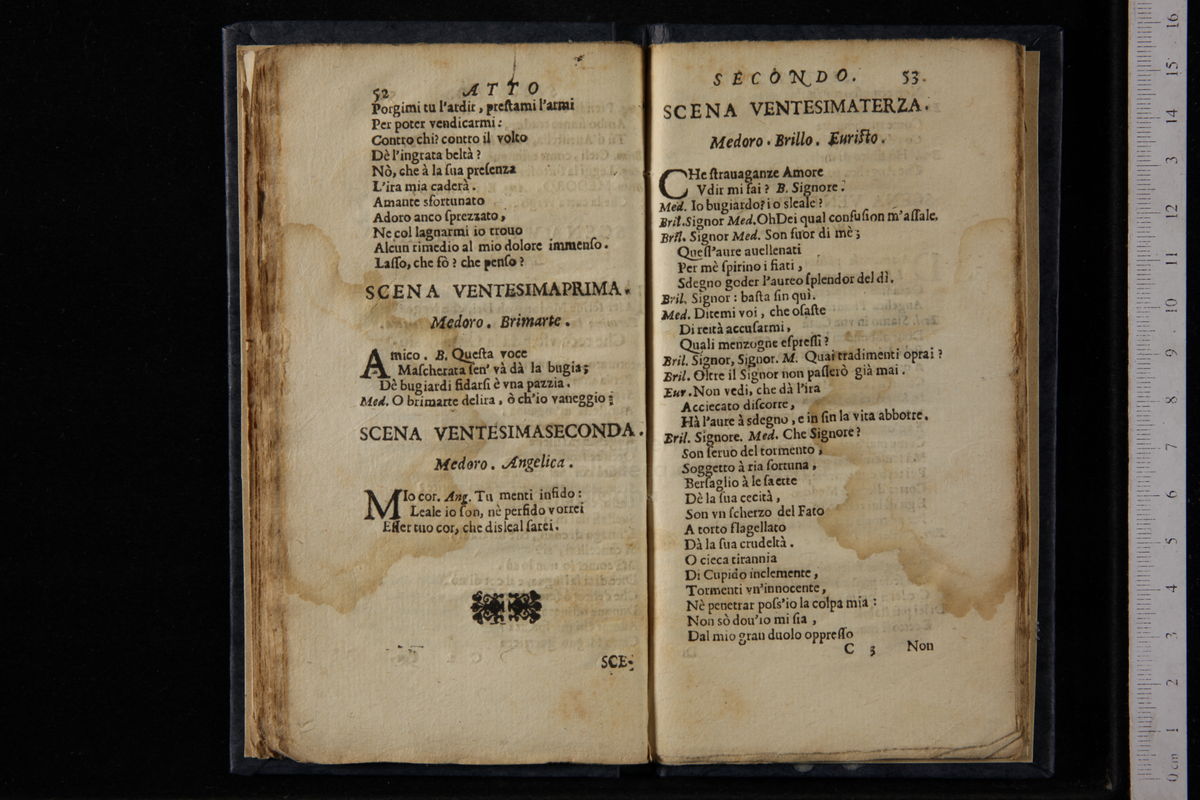 52 ATTO
Porgimi tu l'ardir, preſtami l'armi
Per poter vendicarmi:
Contro chi? contro il volto
Dè l'ingrata beltà?
Nò, che à la ſua preſenza
L'ira mia caderà.
Amante sfortunato
Adoro anco ſprezzato,
Ne col lagnarmi io trouo
Alcun rimedio al mio dolore immenſo.
Laſſo, che fò? che penſo?
SCENA VENTESIMAPRIMA.
Medoro. Brimarte.
Amico. B. Queſta voce
Maſcherata ſen' và dà la bugia;
Dè bugiardi fidarſi è vna pazzia.
Med. O brimarte delira, ò ch'io vaneggio;
SCENA VENTESIMASECONDA.
Medoro. Angelica.
MIo cor. Ang. Tu menti infido:
Leale io ſon, nè perfido vorrei
Eſſer tuo cor, che disleal ſarei.
SCE-
SECONDO. 53.
SCENA VENTESIMATERZA.
Medoro. Brillo. Euriſto.
CHe ſtrauaganze Amore
Vdir mi fai? B. Signore.
Med. Io bugiardo? io sleale?
Bril. Signor Med. Oh Dei qual confuſion m'aſſale.
Bril. Signor Med. Son fuor di mè;
Queſt'aure auellenati
Per mè ſpirino i fiati,
Sdegno goder l'aureo ſplendor del dì.
Bril. Signor: baſta ſin quì.
Med. Ditemi voi, che oſaſte
Di reità accuſarmi,
Quali menzogne eſpreſſi?
Bril. Signor, Signor. M. Quai tradimenti oprai?
Bril. Oltre il Signor non paſſerò già mai.
Eur. Non vedi, che dà l'ira
Acciecato diſcorre,
Hà l'aure à sdegno, e in fin la vita abborre.
Bril. Signore. Med. Che Signore?
Son ſeruo del tormento,
Soggetto à ria fortuna,
Berſaglio à le ſaette
Dè la ſua cecità,
Son vn ſcherzo del Fato
A torto flagellato
Dà la ſua crudeltà.
O cieca tirannia
Di Cupido inclemente,
Tormenti vn'innocente,
Nè penetrar poſs'io la colpa mia:
Non sò dou'io mi ſia,
Dal mio grau duolo oppreſſo
C 3 Non